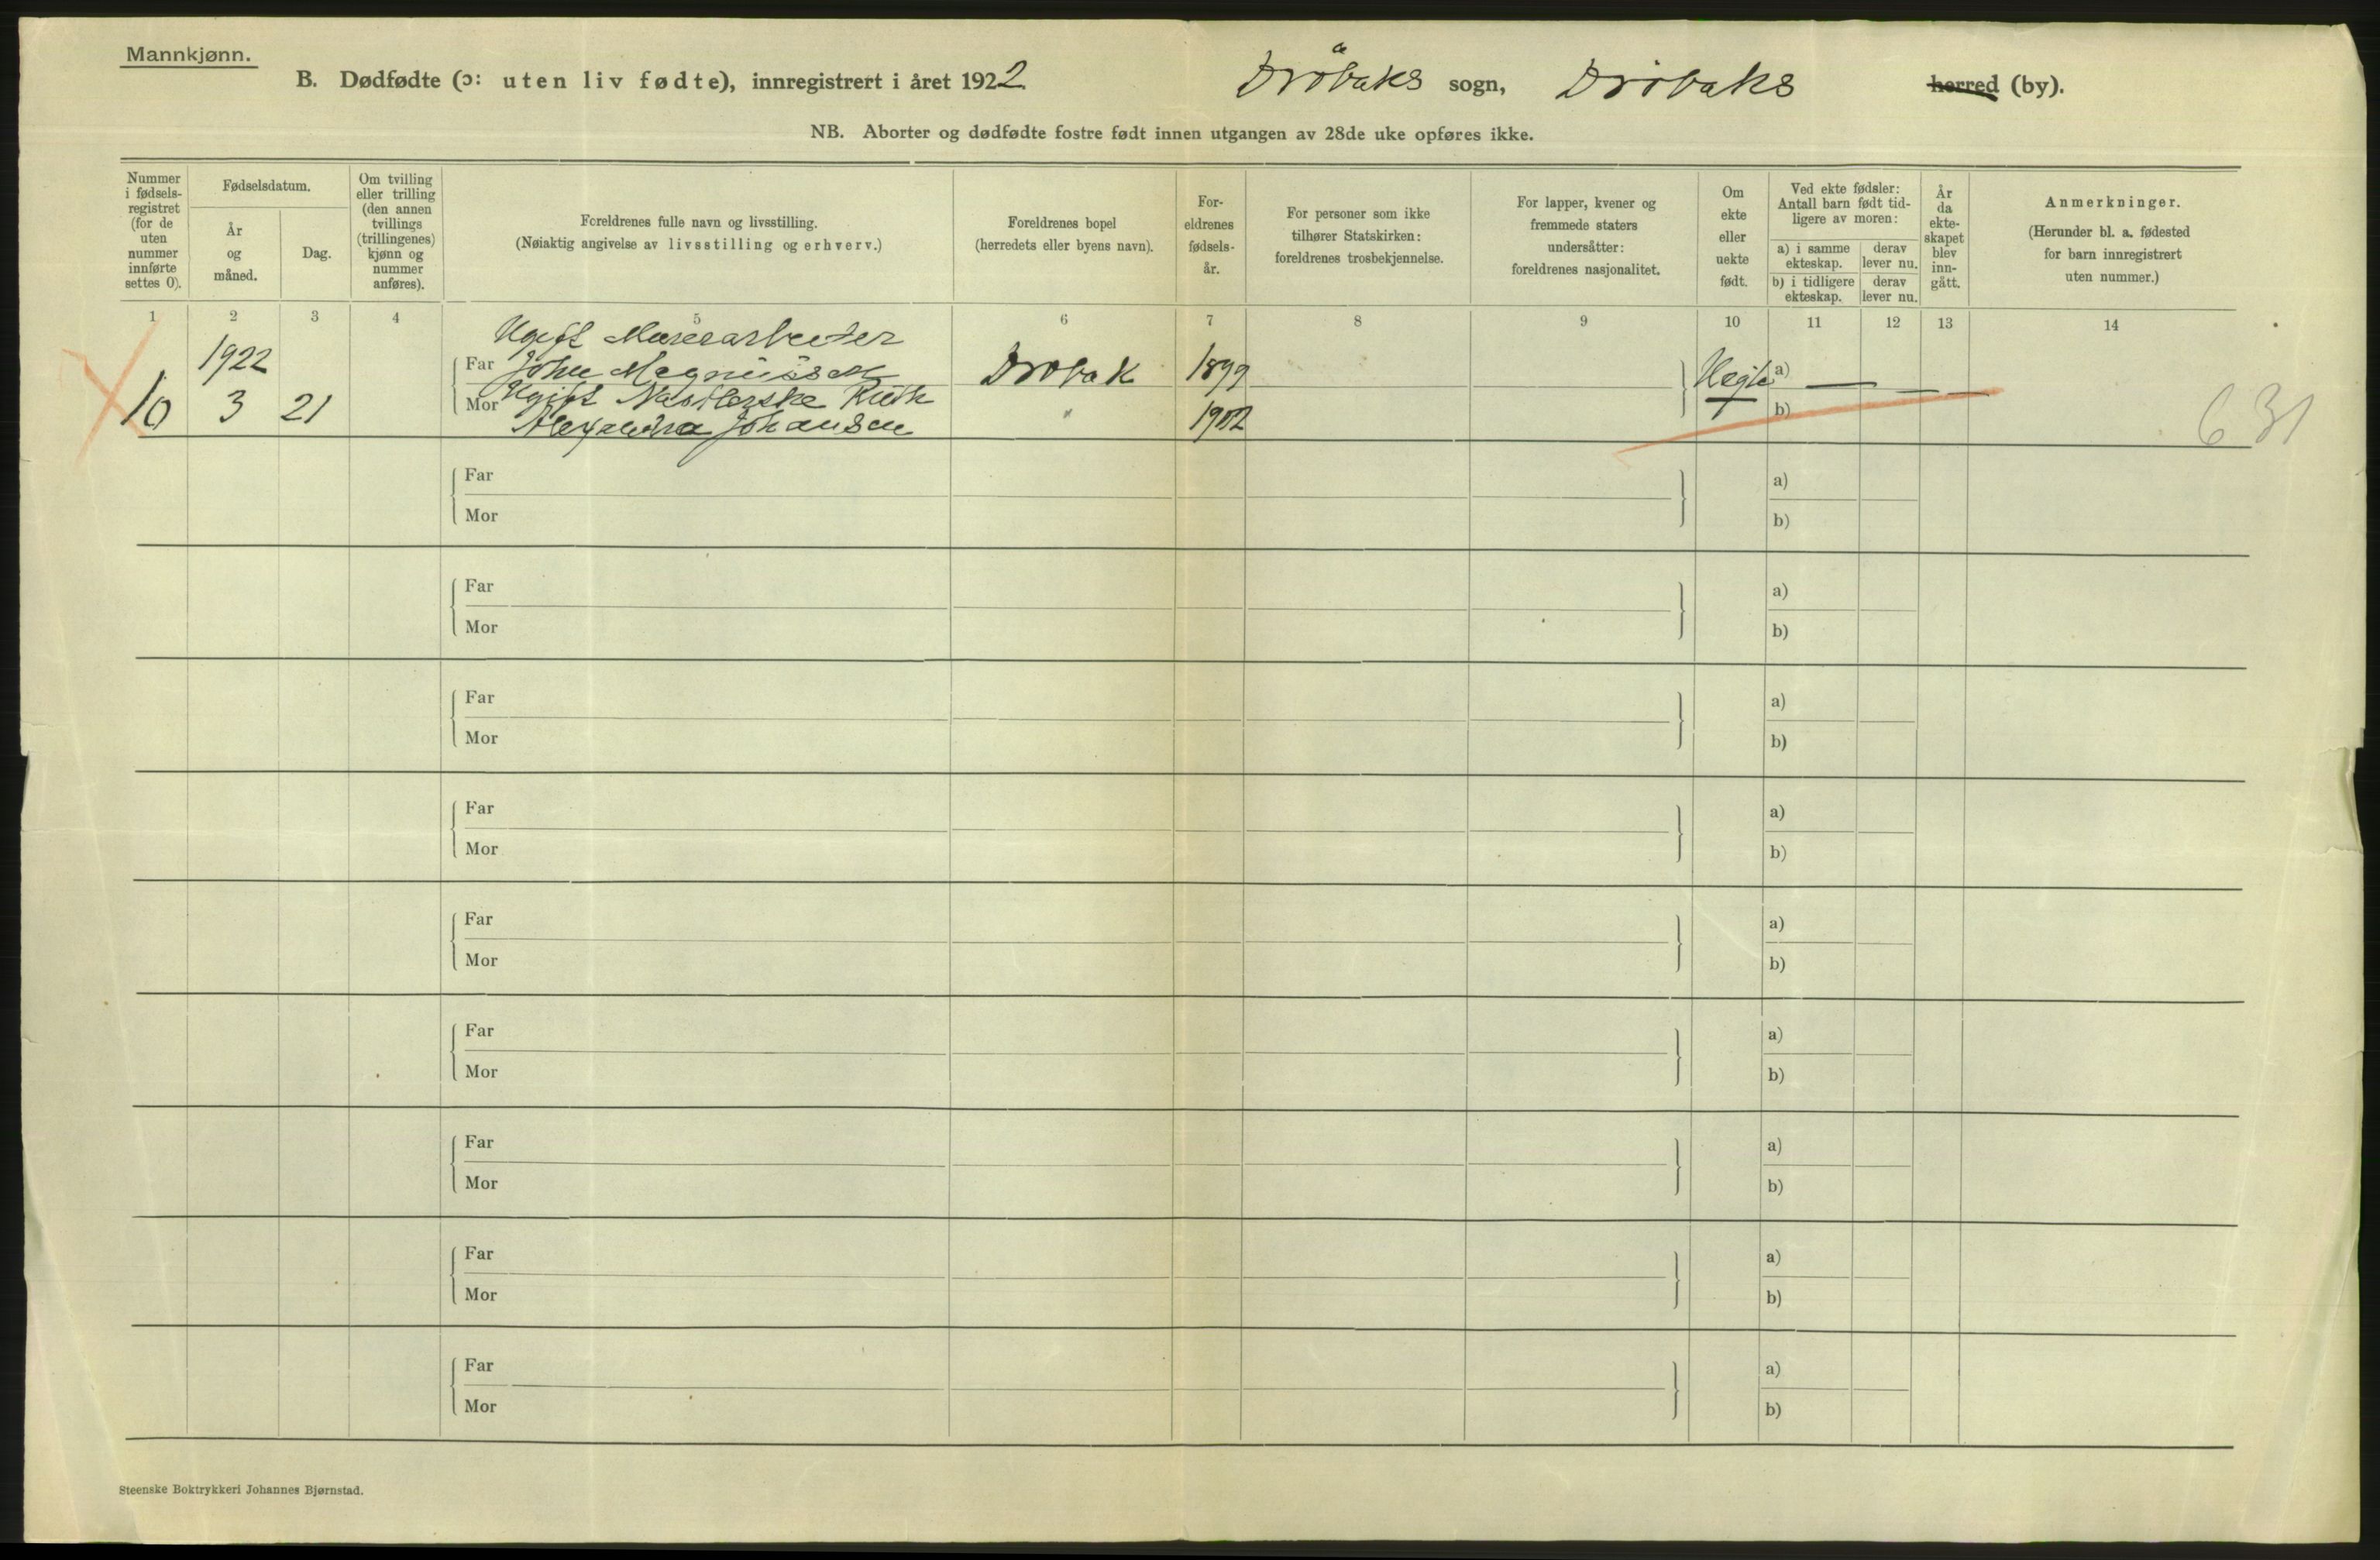 Mannkjønn.
B. Dødfødte (ɔ: uten liv fødte), innregistrert i året 1922 Drøbaks sogn, Drøbaks herred (by).
NB. Aborter og dødfødte fostre født innen utgangen av 28de uke opføres ikke.
Nummer
i fødsels-
registret
(for de
uten
nummer
innførte
settes 0).
Fødselsdatum.
År
og
måned.
Dag.
Om tvilling
eller trilling
(den annen
tvillings
(trillingenes)
kjønn og
nummer
anføres).
Foreldrenes fulle navn og livsstilling.
(Nøiaktig angivelse av livsstilling og erhverv.)
Foreldrenes bopel
(herredets eller byens navn).
For-
eldrenes
fødsels-
år.
For personer som ikke
tilhører Statskirken:
foreldrenes trosbekjennelse.
For lapper, kvener og
fremmede staters
undersåtter:
foreldrenes nasjonalitet.
Om
ekte
eller
uekte
født.
Ved ekte fødsler:
Antall barn født tid-
ligere av moren:
a) i samme
ekteskap.
derav
lever nu.
b) i tidligere
ekteskap.
derav
lever nu.
År
da
ekte-
skapet
blev
inn-
gått.
Anmerkninger.
(Herunder bl. a. fødested
for barn innregistrert
uten nummer.)
1 2 3 4 5 6 7 8 9 10 11 12 13 14
Ugift Murerarbeider
1922 Far John Magnussen Drøbak 1899 Uegte a) — —
10 3 21 Mor Ugift Ruth " 1902 b)
Alexandra Johansen
631
Far a)
Mor b)
Far a)
Mor b)
Far a)
Mor b)
Far a)
Mor b)
Far a)
Mor b)
Far a)
Mor b)
Far a)
Mor b)
Far a)
Mor b)
Far a)
Mor b)
Steenske Boktrykkeri Johannes Bjørnstad.